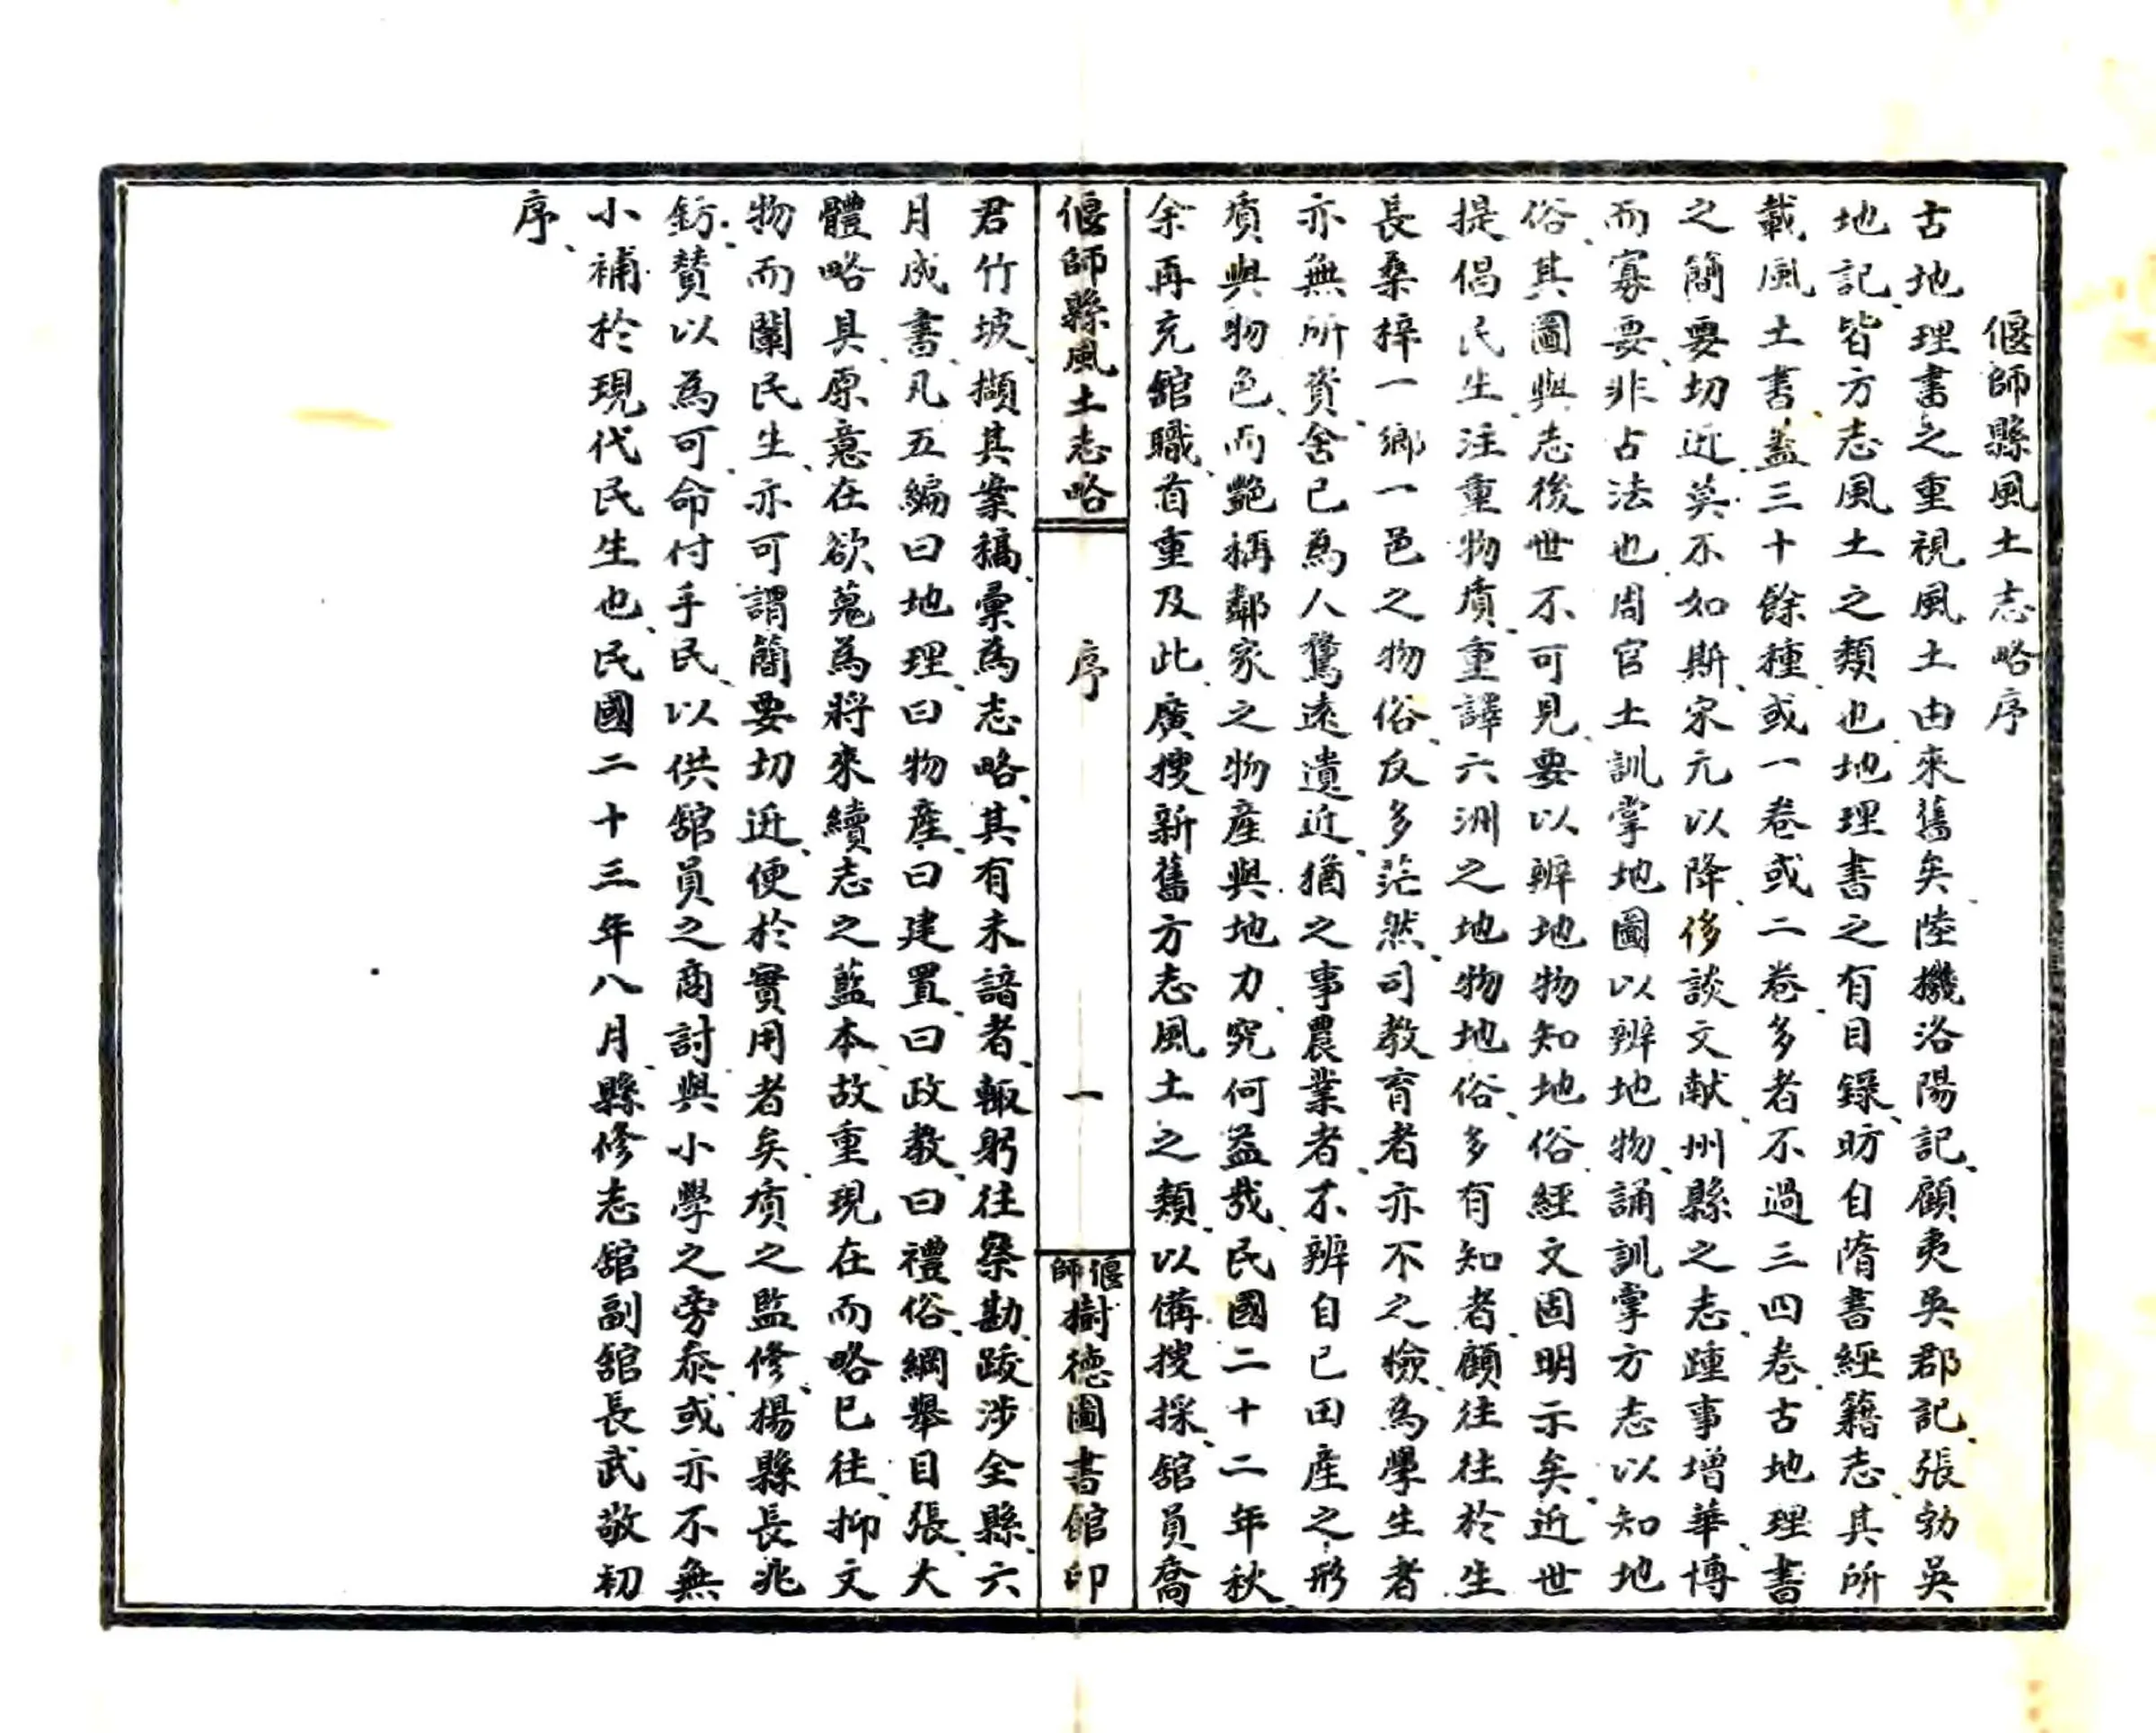 偃師縣風土志略序
古地理書之重視風土由來舊矣、陸機洛陽記、顧夷吳郡記、張勃吳
地記、皆方志風土之類也、地理書之有目錄、昉自隋書經籍志、其所
載風土書、蓋三十餘種、或一卷或二卷、多者不過三四卷、古地理書
之簡要切近、莫不如斯、宋元以降、侈談文献、州縣之志、踵事增華、博
而寡要、非古法也、周官土訓掌地圖以辨地物、誦訓掌方志以知地
俗、其圖與志後世不可見、要以辨地物知地俗、經文固明示矣、近世
提倡民生、注重物質、重譯六洲之地物地俗、多有知者、顧往往於生
長桑梓一鄉一邑之物俗、反多茫然、司教育者亦不之檢、為學生者
亦無所資、舍己為人、騖遠遺近、猶之事農業者、不辨自已田産之形
質與物色、而艷稱鄰家之物産與地力、究何益哉、民國二十二年秋、
余再充舘職、首重及此、廣搜新舊方志風土之類、以備搜採、舘員喬
偃師縣風土志略
序
一
偃師樹德圖書館印
君竹坡、擷其案稿、彙為志略、其有未諳者、輒躬往察勘、跋涉全縣、六
月成書、凡五編、曰地理、曰物産、曰建置、曰政教、曰禮俗、綱舉目張、大
體略具、原意在欲蒐為將來續志之藍本、故重現在而略已往、抑文
物而闡民生、亦可謂簡要切近、便於實用者矣、質之監修、楊縣長兆
鈁、贊以為可、命付手民、以供舘員之商討與小學之旁叅、或亦不無
小補於現代民生也、民國二十三年八月、縣修志舘副舘長武敬初
序、